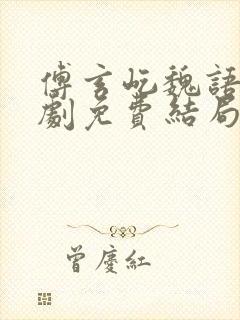 傅言屹魏語
劇免費結局
曾慶紅